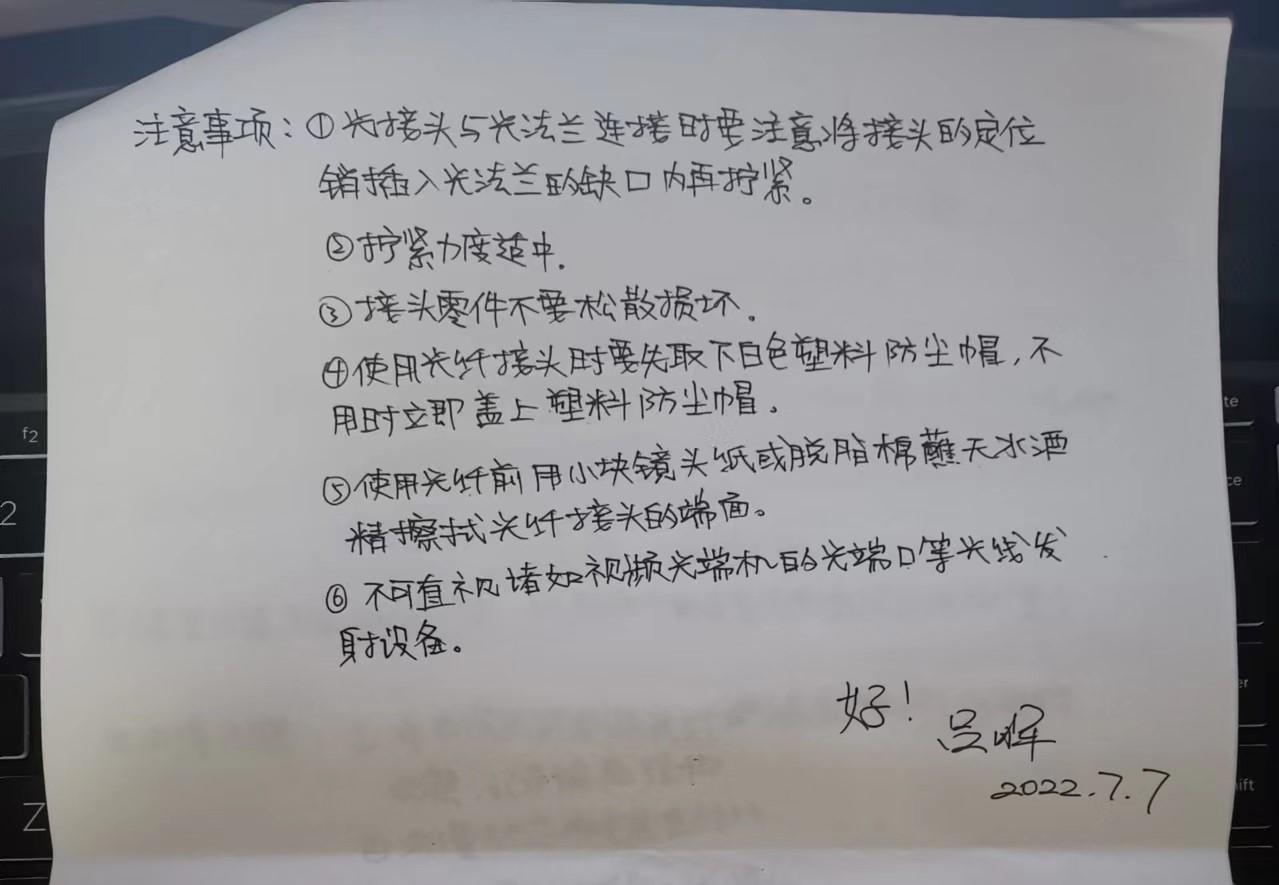 注意事项：①光接头与光法兰连接时要注意将接头的定位
销插入光法兰的缺口内再拧紧。
②拧紧力度适中.
③接头零件不要松散损坏.
④使用光纤接头时要先取下白色塑料防尘帽,不
用时立即盖上塑料防尘帽.
⑤使用光纤前用小块镜头纸或脱脂棉蘸无水酒
精擦拭光纤接头的端面。
⑥不可直视诸如视频光端机的光端口等光线发
射设备。
好!
2022.7.7
f2
2
Z
te
ce
er
ift